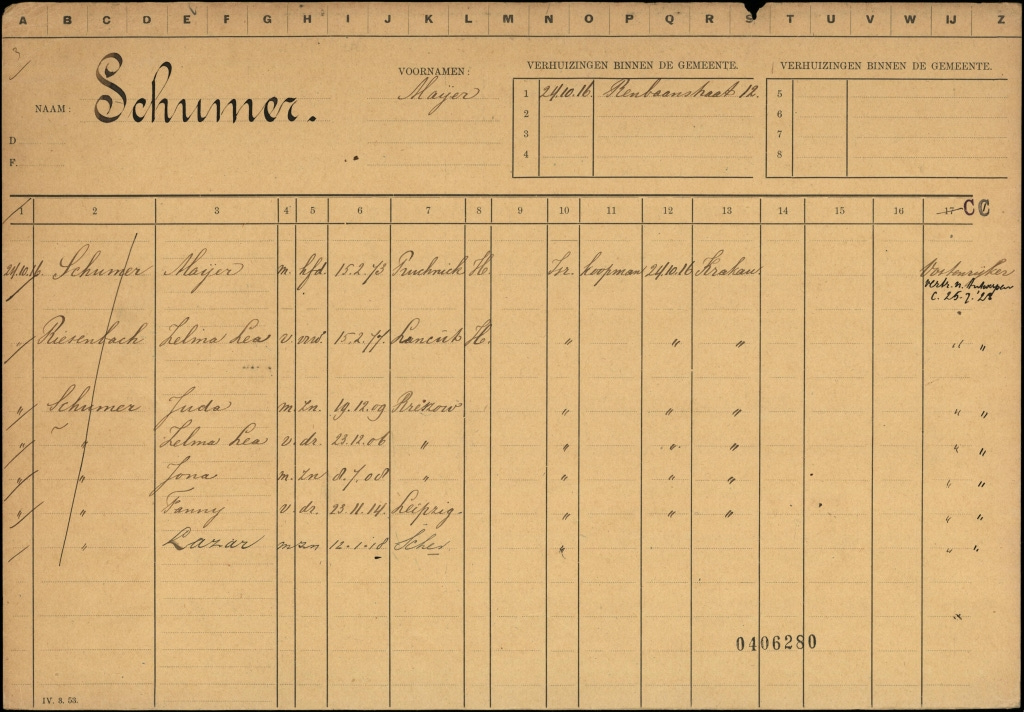 A B C D E F G H I J K L M N O P Q R S T U V W IJ Z
NAAM: Schumer.
VOORNAMEN:
Maijer
D
F.
VERHUIZINGEN BINNEN DE GEMEENTE.
1 24.10.16. Renbaanstraat 12.
2
3
4
VERHUIZINGEN BINNEN DE GEMEENTE.
5
6
7
8
1 2 3 4 5 6 7 8 9 10 11 12 13 14 15 16 17 CC
24.10.16. Schumer Maijer m. hfd. 15.2.73 Pruchnick H. Isr. koopman 24.10.16 Krakau. Oostenrijker
vertr. n. Antwerpen
C. 25.7.'28
" Riesenbach Zelma Lea v. vrd. 15.2.77. Lancut H. " " " " "
" Schumer Juda m. zn. 19.12.09 Rzikow " " " " "
" " Zelma Lea v. dr. 23.12.06 " " " " " "
" " Jona m. zn 8.7.08 " " " " " "
" " Fanny v. dr. 23.11.14. Leipzig. " " " " "
" Lazar m zn 12.1.18 Sche. " " "
0406280
IV. 8. 53.